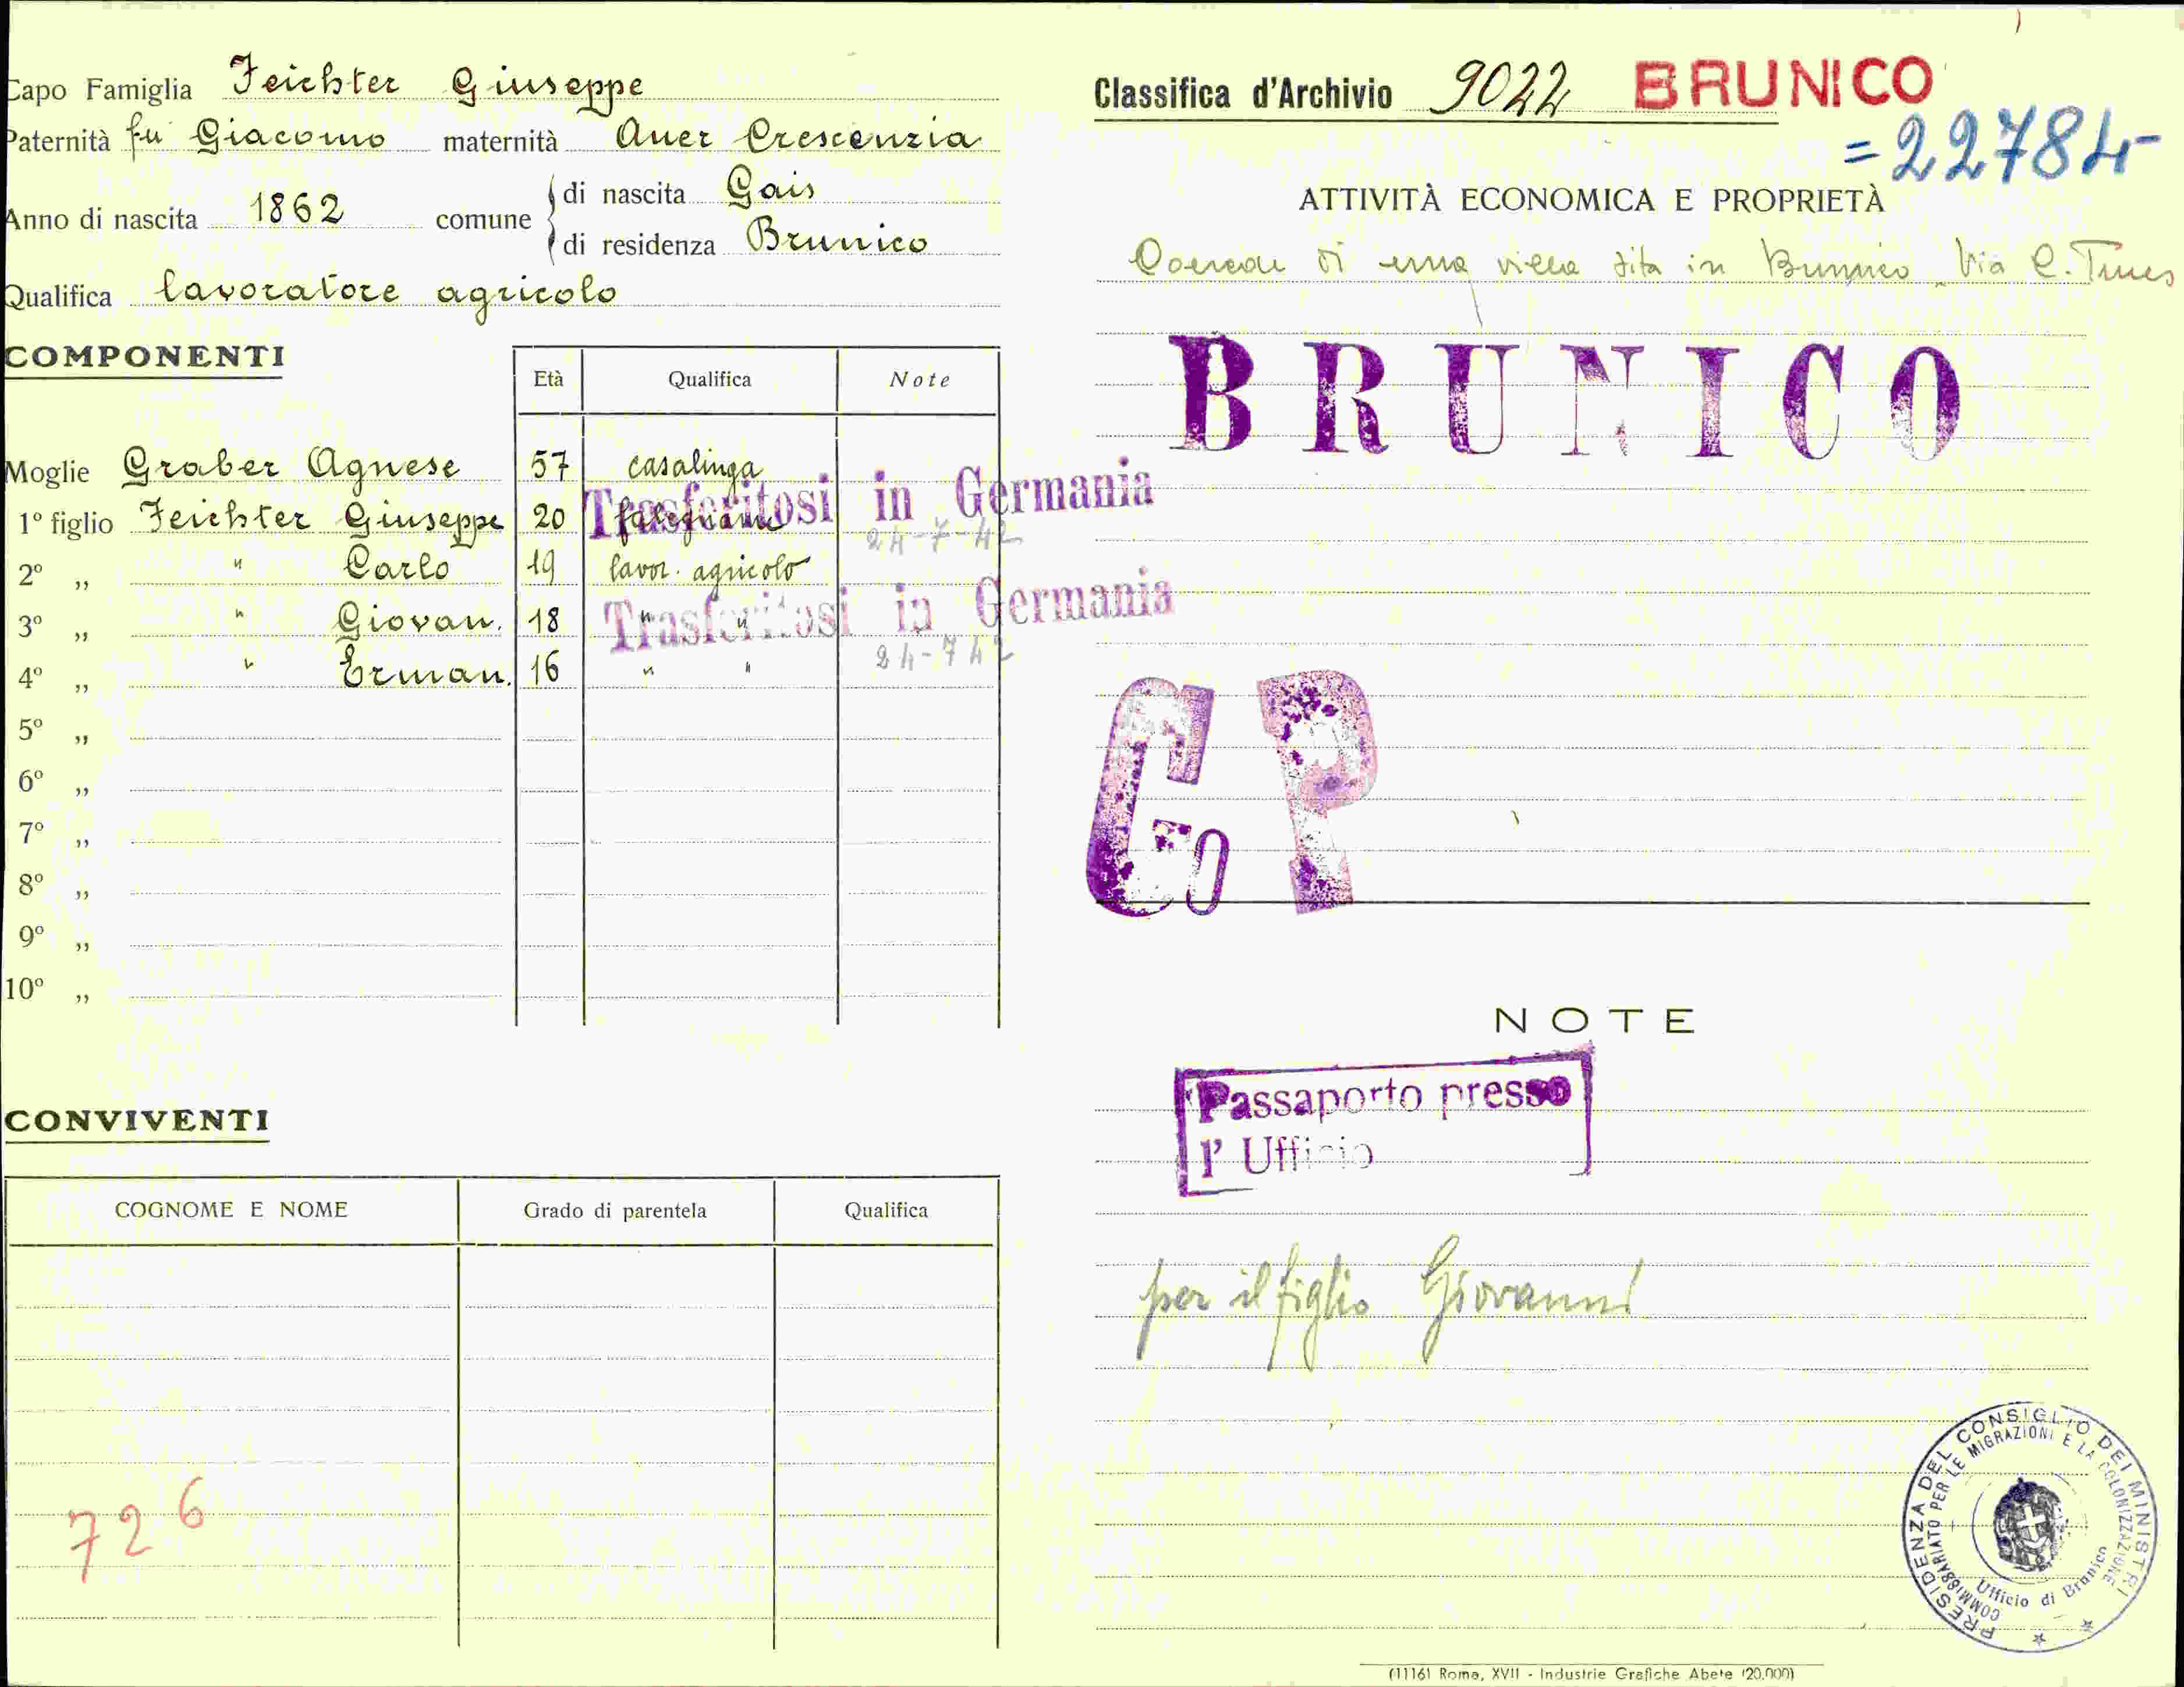 Capo Famiglia Feichter Giuseppe
Paternità fu Giacomo maternità Auer Crescenzia
Anno di nascita 1862 comune di nascita Gais
di residenza Brunico
Qualifica lavoratore agricolo
COMPONENTI
Età Qualifica Note
Moglie Graber Agnese 57 casalinga
Trasferitosi in Germania
1º figlio Feichter Giuseppe 20 falegname
24-7-42
2º „ " Carlo 19 lavor. agricolo
Trasferitosi in Germania
3º „ " Giovan. 18 " "
24-742
4º „ " Erman. 16 " "
5º „
6º „
7º „
8º „
9º „
10º „
CONVIVENTI
COGNOME E NOME Grado di parentela Qualifica
726
Classifica d'Archivio 9022 BRUNICO
=22784
ATTIVITÀ ECONOMICA E PROPRIETÀ
di una villa sita in Brunico Via C.
BRUNICO
Co P
NOTE
Passaporto presso
l' Ufficio
per il figlio Giovanni
PRESIDENZA DEL CONSIGLIO DEI MINISTRI
COMMISSARIATO PER LE MIGRAZIONI E LA COLONIZZAZIONE
Ufficio di Brunico
(1116) Roma, XVII - Industrie Grafiche Abete (20.000)